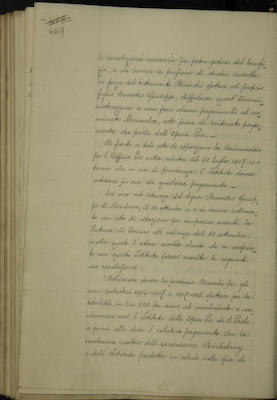 469
le condizioni necessarie per poter godere del benefi-
cio, e che invece la pensione di studio dovuta
in forza del testamento Bianchi spettava al proprio
figlio Giuseppe, diffidava quest'Ammi-
nistrazione a non fare alcun pagamento al no-
minato sotto pena di ripetuto paga-
mento da parte dell'Opera Pia.
Di fronte a tale atto di opposizione la Commissione
per l'Ufficio Pio nella seduta del 20 luglio 1907 ri-
tenne che in via di prudenza l'Istituto dovesse
astenersi per ora da qualsiasi pagamento.
Ed ora ad istanza del signor Giusep-
pe di Nicodemo, il 12 ottobre u.s. venne intima-
to un atto di citazione per comparire avanti la
Pretura di Torino all'udienza del 30 ottobre,
nella quale l'attore avrebbe chiesto che in confron-
to con questo Istituto fossero accolte le seguenti
sue conclusioni:
dovuta la pensione Bianchi per gli
anni scolastici 1906-1907 e 1907-1908, spettare per la
totalità, in lire 500 per anno, al
l'Istituto delle Opere Pie di S. Paolo
a farne allo stesso il relativo pagamento. Con la
condanna inoltre del
e dell'Istituto predetto in solido nelle spese di